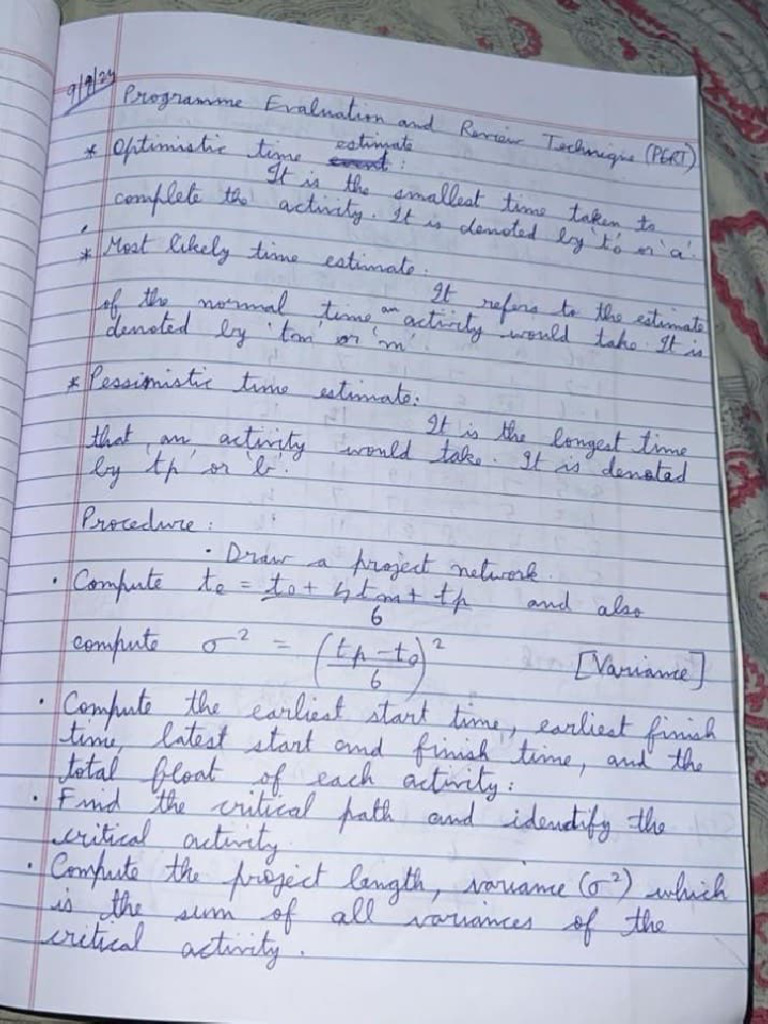 9/9/24
Programme Evaluation and Review Technique (PERT)
* Optimistic time estimate :
It is the smallest time taken to
complete the activity. It is denoted by 'to' or 'a'.
* Most likely time estimate.
It refers to the estimate
of the normal time an activity would take. It is
denoted by 'tm' or 'm'.
* Pessimistic time estimate:
It is the longest time
that an activity would take. It is denoted
by 'tp' or 'b'.
Procedure :
· Draw a project network.
· Compute te = to + 4tm + tp / 6 and also
compute σ² = (tp - to / 6)² [Variance]
· Compute the earliest start time, earliest finish
time, latest start and finish time, and the
total float of each activity:
· Find the critical path and identify the
critical activity
· Compute the project length, variance (σ²) which
is the sum of all variances of the
critical activity.